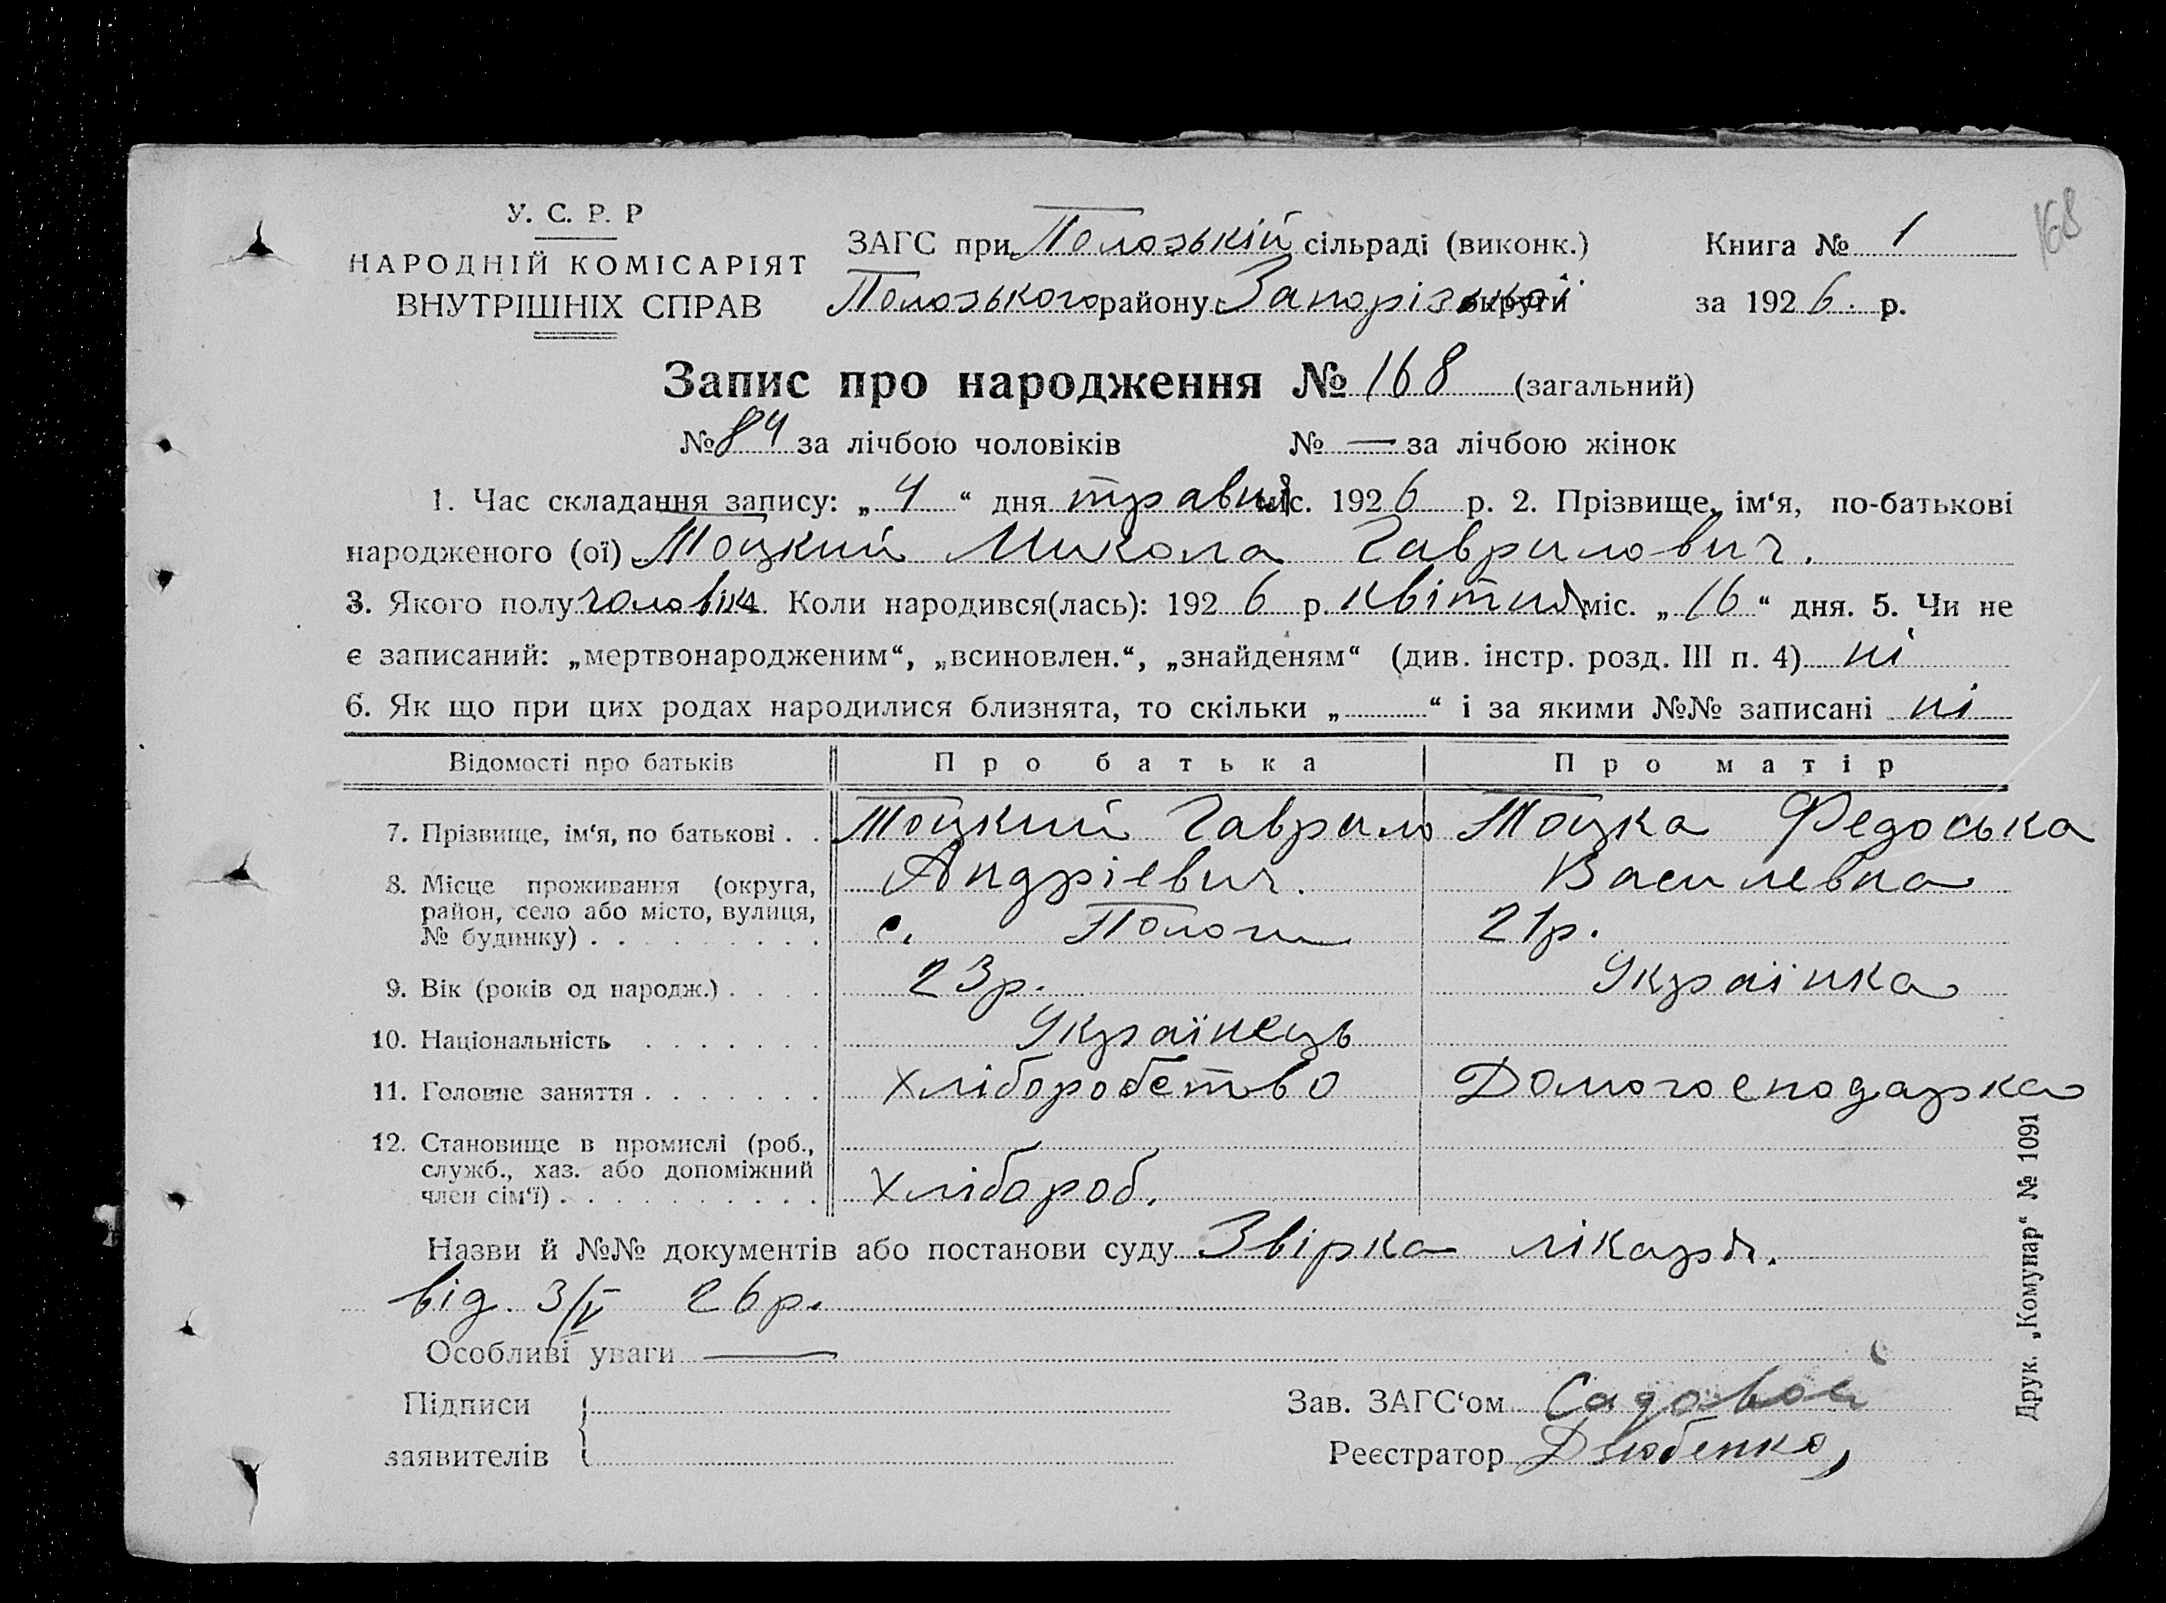 168
У. С. Р. Р
НАРОДНІЙ КОМІСАРІЯТ
ВНУТРІШНІХ СПРАВ
ЗАГС при Пологській сільраді (виконк.) Книга № 1
Пологського району Запорізької округи за 1926 р.
Запис про народження № 168 (загальний)
№ 84 за лічбою чоловіків № — за лічбою жінок
1. Час складання запису: „ 4 “ дня травня міс. 1926 р. 2. Прізвище, ім‘я, по-батькові
народженого (ої) Тоцкий Микола Гаврилович.
3. Якого полу чоловік 4. Коли народився(лась): 1926 р. квітня міс. „ 16 “ дня. 5. Чи не
є записаний: „мертвонародженим“, „всиновлен.“, „знайденям“ (див. інстр. розд. III п. 4) ні
6. Як що при цих родах народилися близнята, то скільки „ “ і за якими №№ записані ні
Відомості про батьків Про батька Про матір
7. Прізвище, ім‘я, по батькові . . Тоцкий Гаврило Тоцка Федоська
Андрієвич. Василевна
8. Місце проживання (округа,
район, село або місто, вулиця,
№ будинку) . . . . . . . . . с. Пологи 21р.
9. Вік (років од народж.) . . . . 23р. Українка
10. Національність . . . . . . . Українець
11. Головне заняття . . . . . . . хліборобство Домогосподарка
12. Становище в промислі (роб.,
служб., хаз. або допоміжний
член сім‘ї) . . . . . . . . . . хлібороб.
Назви й №№ документів або постанови суду Звірка лікаря.
від 3/V 26р.
Особливі уваги —
Підписи
заявителів
Зав. ЗАГС‘ом Садовой
Реєстратор Дзюбенко
Друк. „Комунар“ № 1091